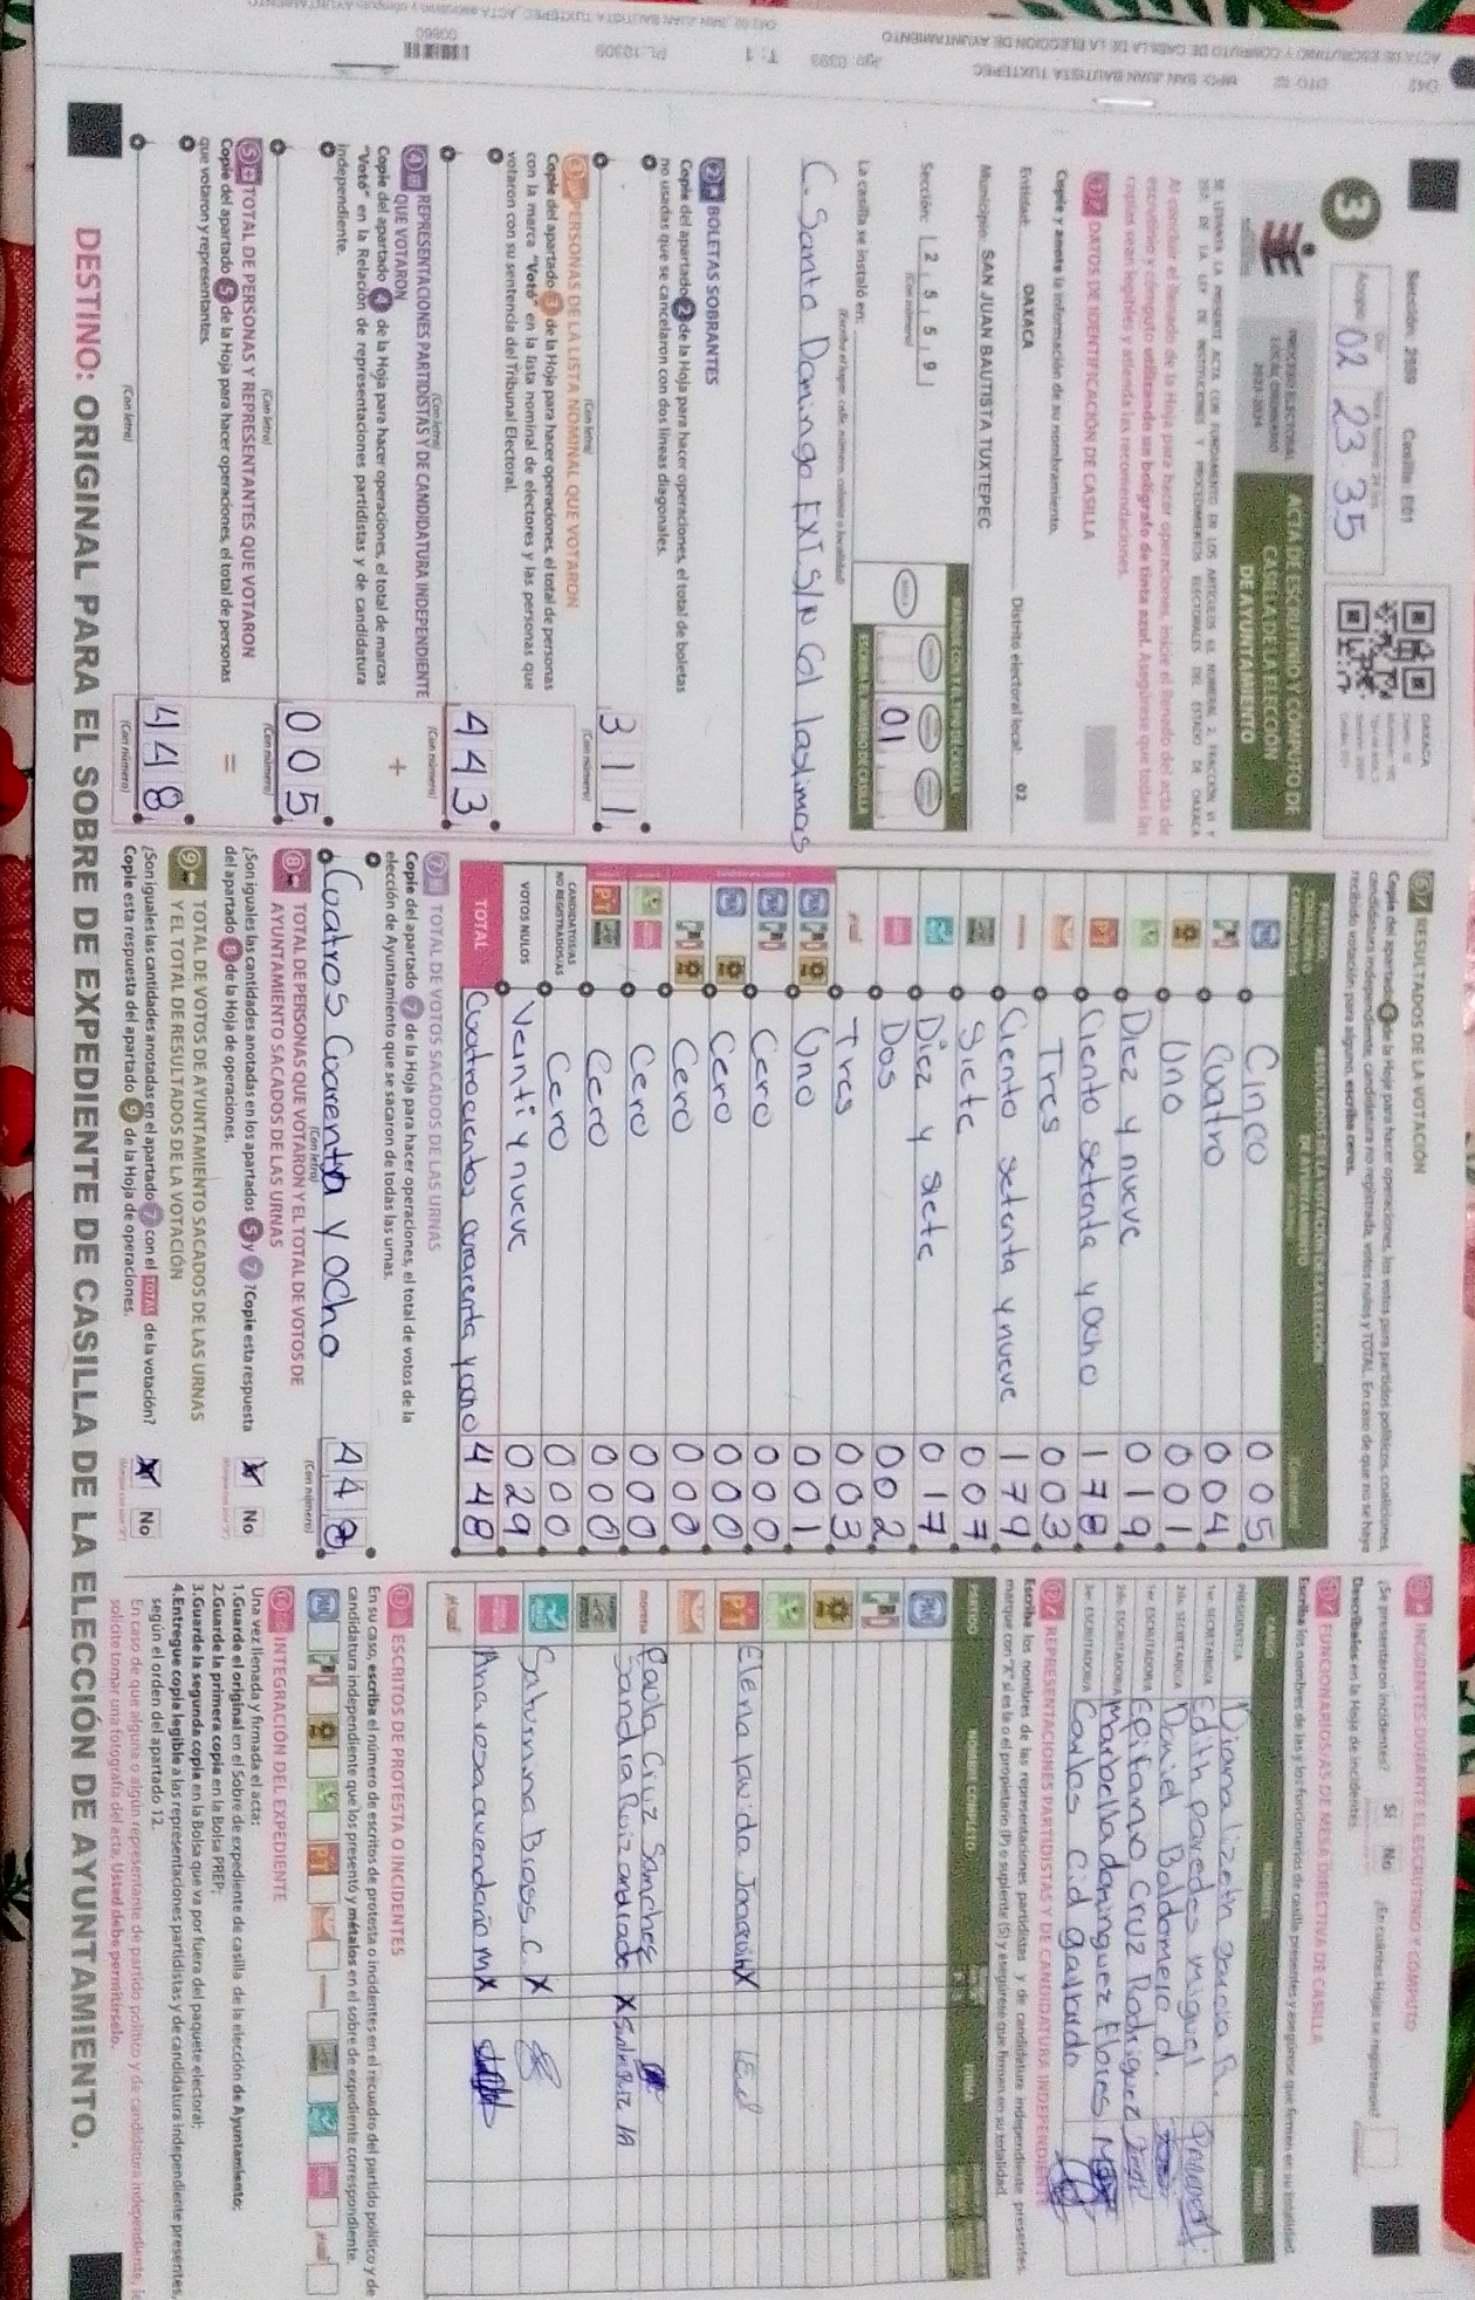 Sección: 2559 Casilla: E01
3
Acopio: 02 23 35
PROCESO ELECTORAL
LOCAL ORDINARIO
2023-2024
ACTA DE ESCRUTINIO Y CÓMPUTO DE
CASILLA DE LA ELECCIÓN
DE AYUNTAMIENTO
Al concluir el llenado de la Hoja para hacer operaciones, inicie el llenado del acta de
escrutinio y cómputo utilizando un bolígrafo de tinta azul. Asegúrese que todas las
copias sean legibles y atienda las recomendaciones.
1 DATOS DE IDENTIFICACIÓN DE CASILLA
Copie y anote la información de su nombramiento.
Entidad: OAXACA Distrito electoral local: 02
Municipio: SAN JUAN BAUTISTA TUXTEPEC
Sección: 2 5 5 9
(Con número)
MARQUE CON "X" EL TIPO DE CASILLA
01
ESCRIBA EL NÚMERO DE CASILLA
La casilla se instaló en:
(Escriba el lugar: calle, número, colonia o localidad)
C. Santo Domingo EXT S/N Col lasLimas
2 BOLETAS SOBRANTES
Copie del apartado 2 de la Hoja para hacer operaciones, el total de boletas
no usadas que se cancelaron con dos líneas diagonales.
311
(Con letra) (Con número)
3 PERSONAS DE LA LISTA NOMINAL QUE VOTARON
Copie del apartado 3 de la Hoja para hacer operaciones, el total de personas
con la marca "Votó" en la lista nominal de electores y las personas que
votaron con su sentencia del Tribunal Electoral.
443
(Con letra) (Con número)
4 REPRESENTACIONES PARTIDISTAS Y DE CANDIDATURA INDEPENDIENTE
QUE VOTARON
+
Copie del apartado 4 de la Hoja para hacer operaciones, el total de marcas
"Votó" en la Relación de representaciones partidistas y de candidatura
independiente.
005
(Con letra) (Con número)
5 TOTAL DE PERSONAS Y REPRESENTANTES QUE VOTARON
=
Copie del apartado 5 de la Hoja para hacer operaciones, el total de personas
que votaron y representantes.
448
(Con letra) (Con número)
6 RESULTADOS DE LA VOTACIÓN
Copie del apartado 6 de la Hoja para hacer operaciones, los votos para partidos políticos, coaliciones,
candidatura independiente, candidatura no registrada, votos nulos y TOTAL. En caso de que no se haya
recibido votación para alguno, escriba ceros.
RESULTADOS DE LA VOTACIÓN DE LA ELECCIÓN
DE AYUNTAMIENTO
PAN Cinco 005
PRI Cuatro 004
Uno 001
Diez y nueve 019
PT Ciento setenta y ocho 178
Tres 003
Ciento setenta y nueve 179
Siete 007
Diez y siete 017
Dos 002
Tres 003
PAN PRI Uno 001
PAN PRI Cero 000
PAN Cero 000
PRI Cero 000
Cero 000
PT Cero 000
CANDIDATOS/AS
NO REGISTRADOS/AS Cero 000
VOTOS NULOS Veinti y nueve 029
TOTAL Cuatrocientos cuarenta y ocho 448
7 TOTAL DE VOTOS SACADOS DE LAS URNAS
Copie del apartado 7 de la Hoja para hacer operaciones, el total de votos de la
elección de Ayuntamiento que se sacaron de todas las urnas.
Cuatros Cuarenta y ocho 448
(Con letra) (Con número)
8 TOTAL DE PERSONAS QUE VOTARON Y EL TOTAL DE VOTOS DE
AYUNTAMIENTO SACADOS DE LAS URNAS
¿Son iguales las cantidades anotadas en los apartados 5 y 7? Copie esta respuesta
del apartado 8 de la Hoja de operaciones.
X No
9 TOTAL DE VOTOS DE AYUNTAMIENTO SACADOS DE LAS URNAS
Y EL TOTAL DE RESULTADOS DE LA VOTACIÓN
¿Son iguales las cantidades anotadas en el apartado 7 con el TOTAL de la votación?
Copie esta respuesta del apartado 9 de la Hoja de operaciones.
X No
INCIDENTES DURANTE EL ESCRUTINIO Y CÓMPUTO
¿Se presentaron incidentes? Sí No ¿En cuántas Hojas se registraron?
Descríbalos en la Hoja de incidentes.
FUNCIONARIOS/AS DE MESA DIRECTIVA DE CASILLA
Escriba los nombres de las y los funcionarios de casilla presentes y asegúrese que firmen en su totalidad.
CARGO NOMBRE FIRMA
PRESIDENTE/A Diana lizeth Garcia R.
1er. SECRETARIO/A Edith paredes miguel
2do. SECRETARIO/A Daniel Baldomero d.
1er. ESCRUTADOR/A Epifanio Cruz Rodriguez
2do. ESCRUTADOR/A Marbella dominguez Flores
3er. ESCRUTADOR/A Carlos Cid gallardo
12 REPRESENTACIONES PARTIDISTAS Y DE CANDIDATURA INDEPENDIENTE
Escriba los nombres de las representaciones partidistas y de candidatura independiente presentes,
marque con "X" si es la o el propietario (P) o suplente (S) y asegúrese que firmen en su totalidad.
PARTIDO NOMBRE COMPLETO FIRMA
PAN
PRI
PT Elena Lavida Joaquin X
morena Paola Cruz Sanchez
Sandra Ruiz andrade X
Saturnina Bioss. C. X
Ana resa avendaño M X
11 ESCRITOS DE PROTESTA O INCIDENTES
En su caso, escriba el número de escritos de protesta o incidentes en el recuadro del partido político y de
candidatura independiente que los presentó y métalos en el sobre de expediente correspondiente.
INTEGRACIÓN DEL EXPEDIENTE
Una vez llenada y firmada el acta:
1.Guarde el original en el Sobre de expediente de casilla de la elección de Ayuntamiento;
2.Guarde la primera copia en la Bolsa PREP;
3.Guarde la segunda copia en la Bolsa que va por fuera del paquete electoral;
4.Entregue copia legible a las representaciones partidistas y de candidatura independiente presentes,
según el orden del apartado 12.
En caso de que alguna o algún representante de partido político y de candidatura independiente, le
solicite tomar una fotografía del acta, Usted debe permitírselo.
DESTINO: ORIGINAL PARA EL SOBRE DE EXPEDIENTE DE CASILLA DE LA ELECCIÓN DE AYUNTAMIENTO.